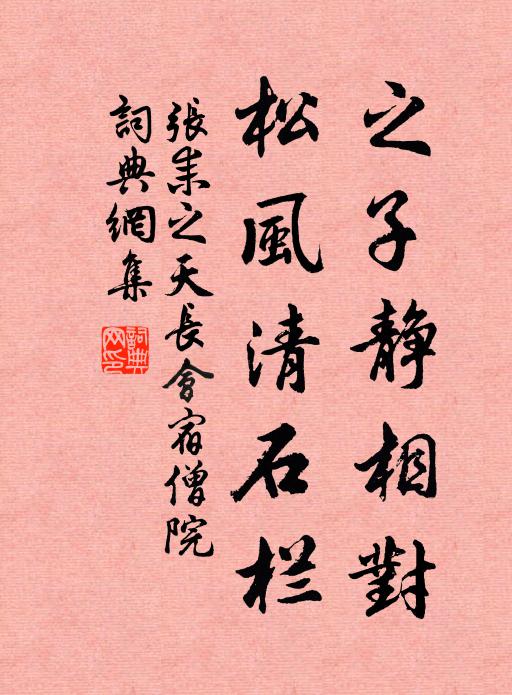 之子静相對
松風清石栏
張耒之天長會宿僧院
詞典網集
詞典
网印